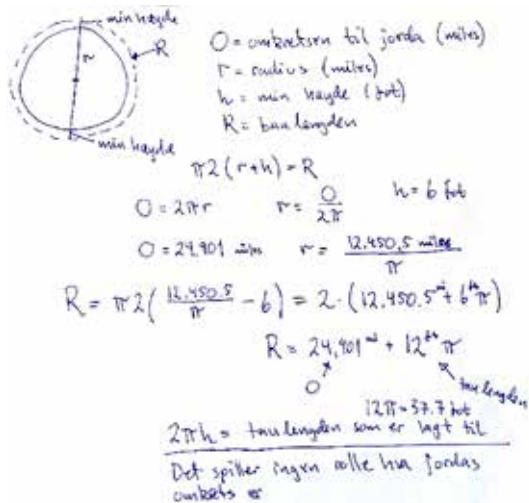 min høyde
R
r
min høyde
O = omkretsen til jorda (miles)
r = radius (miles)
h = min høyde (fot)
R = taulengden
π2(r+h) = R
O = 2πr r = O/2π h = 6 fot
O = 24,901 miles r = 12,450,5 miles/π
R = π2(12,450.5/π - 6) = 2 · (12,450.5 mi + 6 ft π)
R = 24,901 mi + 12 ft π
O
taulengden
12π = 37.7 fot
2πh = taulengden som er lagt til
Det spiller ingen rolle hva jordas
omkrets er